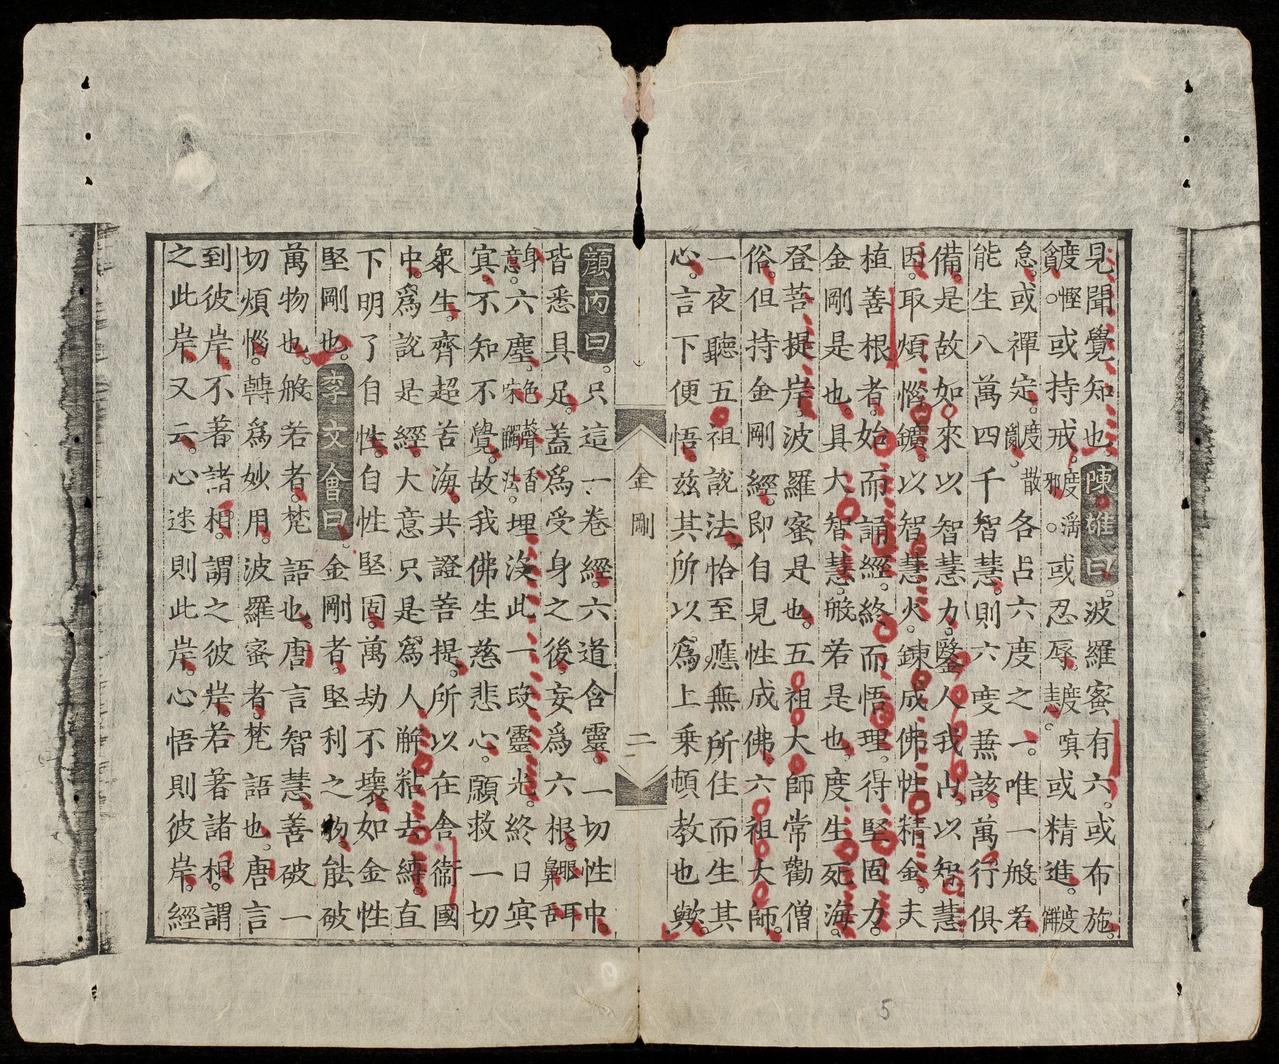 見聞覺知也陳雄曰波羅蜜有六或布施
度慳貪或持戒度邪淫或忍辱度嗔恚或精進度懈
怠或禪定度散亂各占六度之一唯一般若
能生八萬四千智慧則六度兼該萬行俱
備是故如來以智慧力鑿人我山以智慧
因取煩惱鑛以智慧火鍊成佛性精金夫
植善根者始而誦經終而悟理得堅固力
金剛是也具大智慧般若是也度生死海
登菩提岸波羅蜜是也五祖大師常勸僧
俗但持金剛經即自見性成佛六祖大師
一夜聽五祖說法恰至應無所住而生其
心言下便悟茲其所以為上乘頓教也歟
金剛
二
顏丙曰只這一卷經六道含靈一切性中
皆悉具足蓋為受身之後妄為六根眼耳鼻舌
身意六塵色聲香味觸法埋沒此一段靈光終日冥
冥不知不覺故我佛生慈悲心願救一切
衆生齊超苦海共證菩提所以在舍衛國
中為說是經大意只是為人解粘去縛直
下明了自性自性堅固萬劫不壞如金性
堅剛也李文會曰金剛者堅利之物能破
萬物也般若者梵語也唐言智慧善破一
切煩惱轉為妙用波羅蜜者梵語也唐言
到彼岸不著諸相謂之彼岸若著諸相謂
之此岸又云心迷則此岸心悟則彼岸經
5